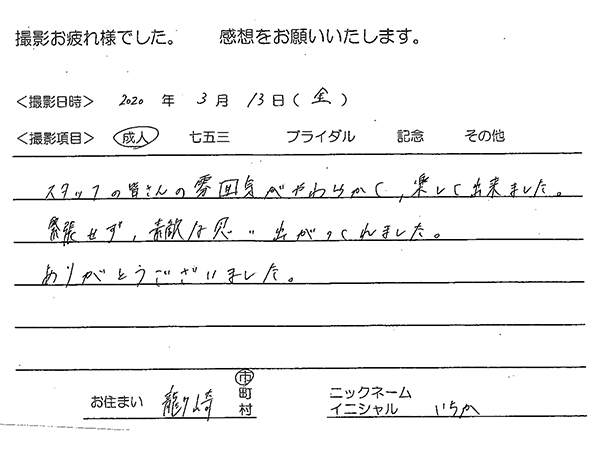 撮影お疲れ様でした。 感想をお願いいたします。
<撮影日時> 2020 年 3 月 13 日 (金)
<撮影項目> 成人 七五三 ブライダル 記念 その他
スタッフの皆さんの雰囲気がやわらかく、楽しく出来ました。
緊張せず、素敵な思い出がつくれました。
ありがとうございました。
お住まい 龍ヶ崎 市町村 ニックネーム イニシャル いちか